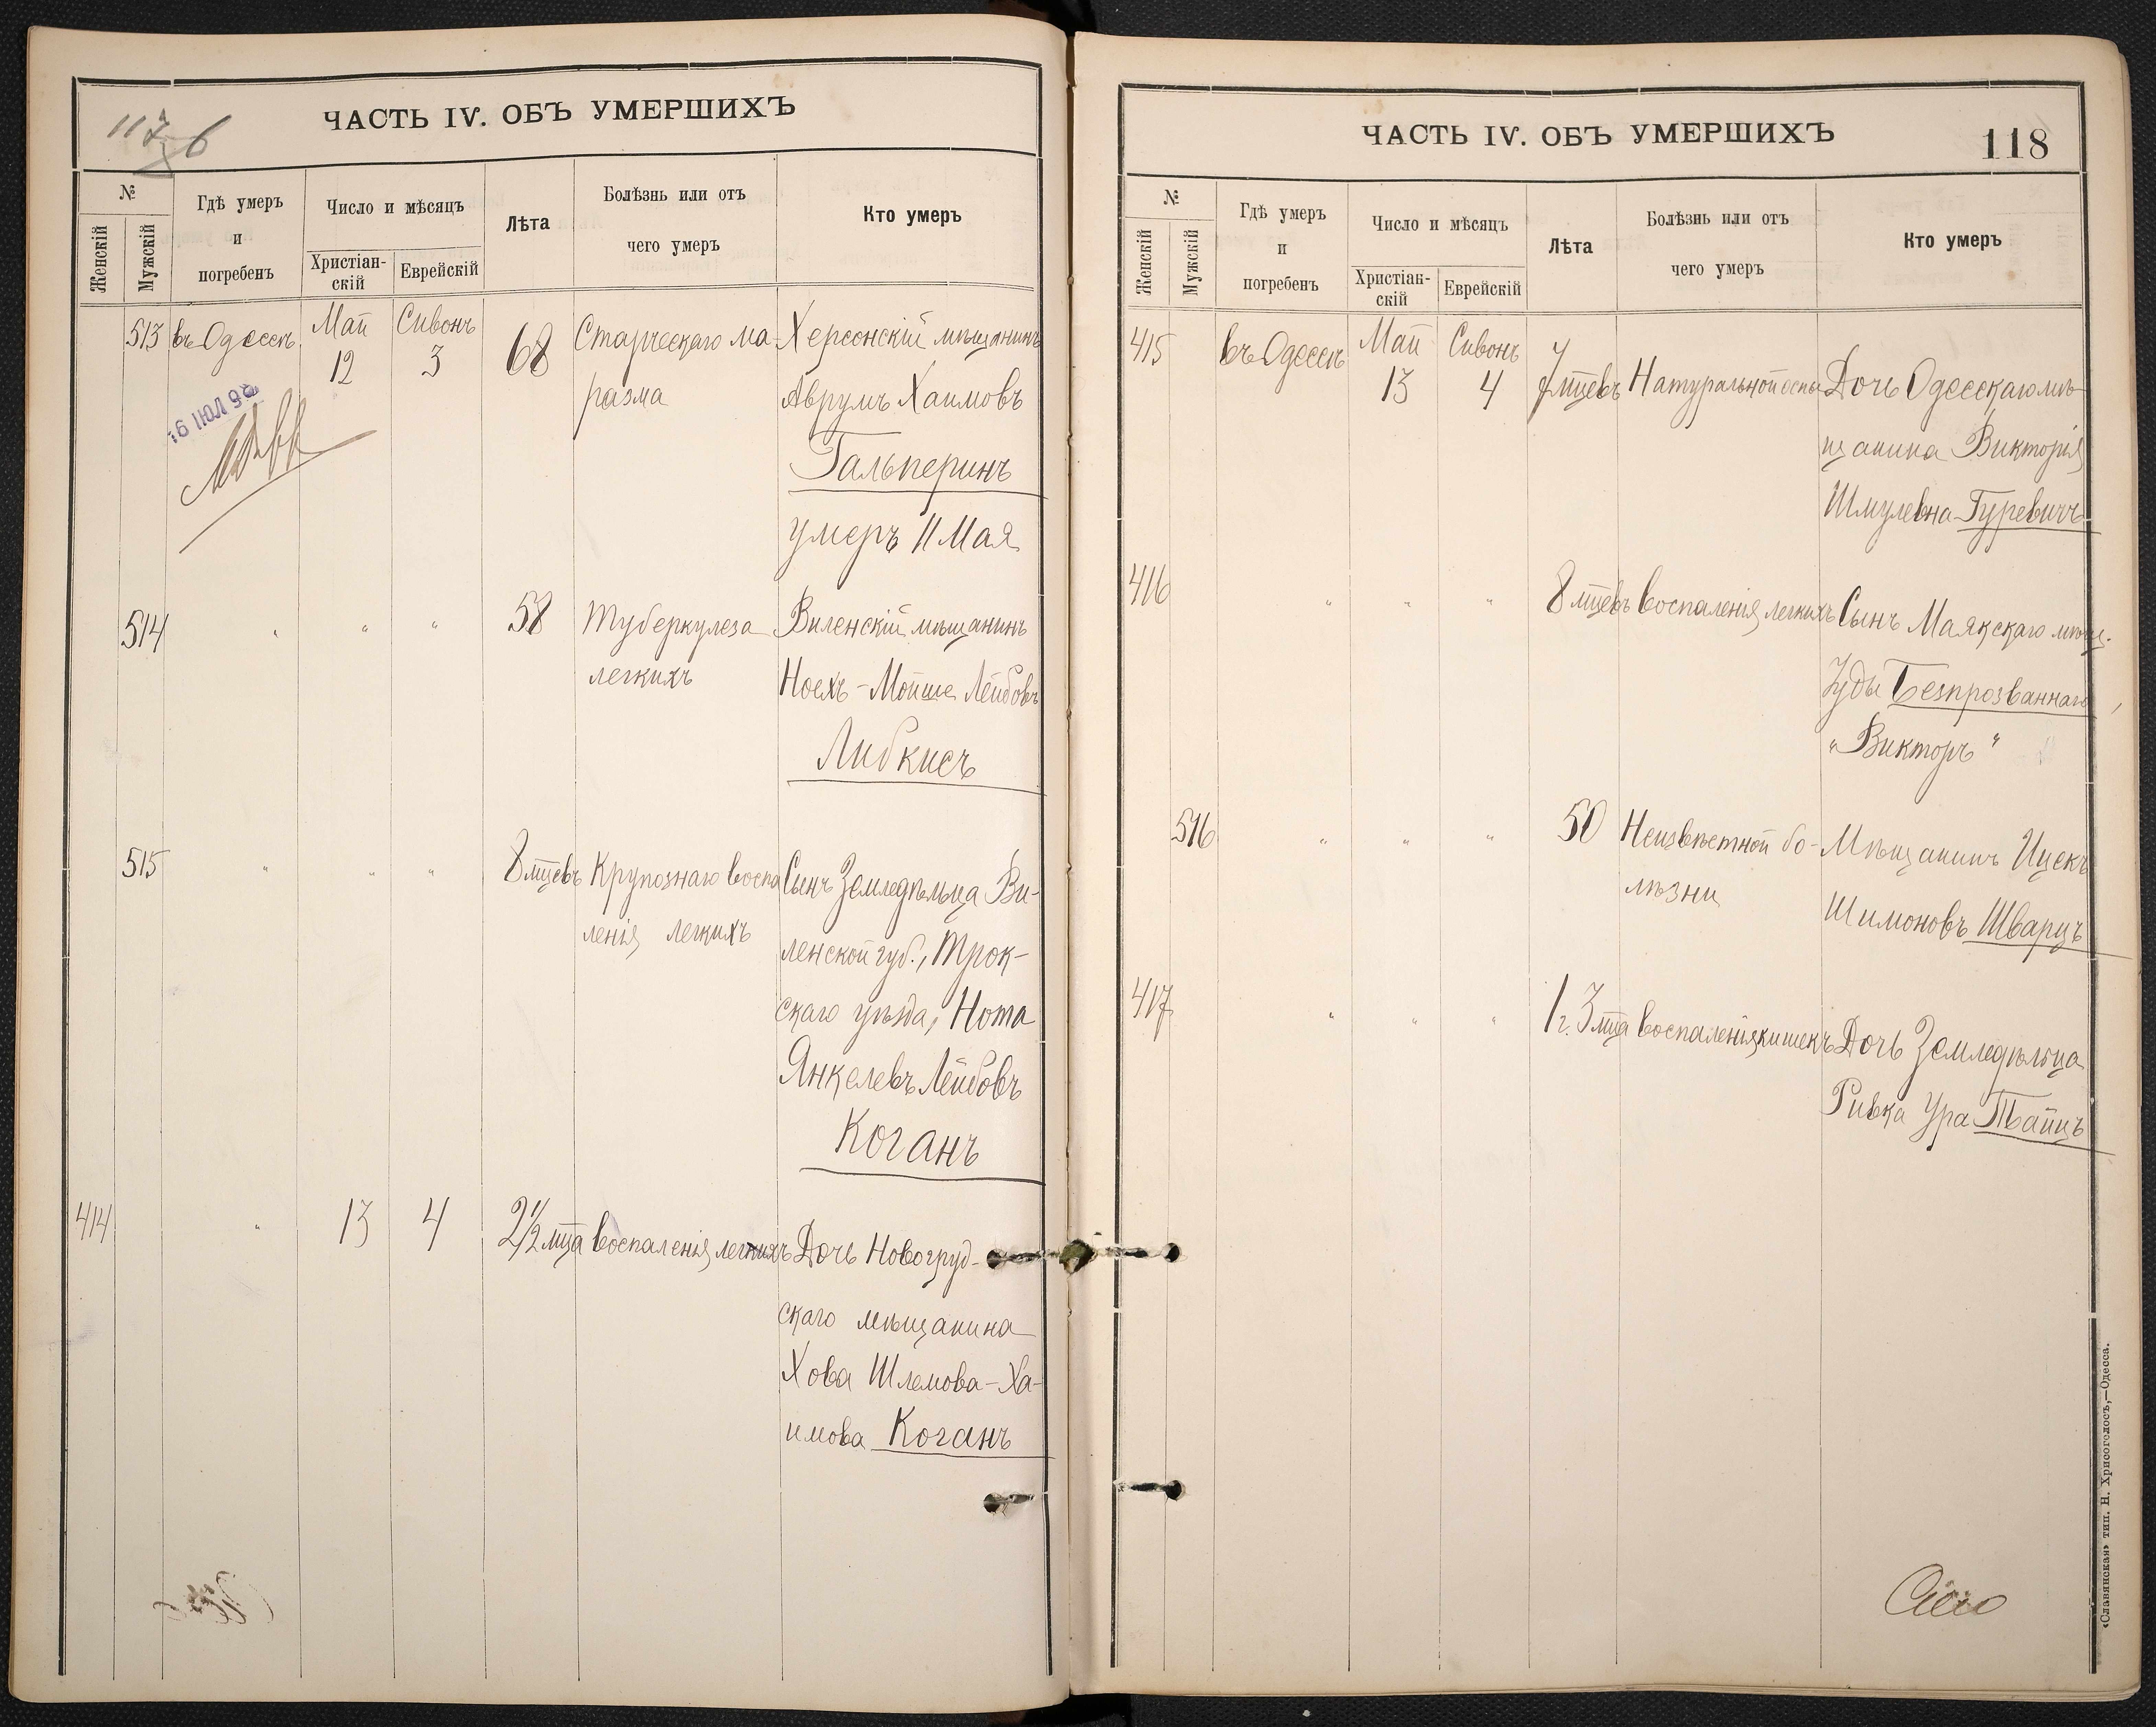 117 6
ЧАСТЬ IV. ОБЪ УМЕРШИХЪ
№
Женскій
Мужскій
Гдѣ умеръ
и
погребенъ
Число и мѣсяцъ
Христіан-
скій
Еврейскій
Лѣта
Болѣзнь или отъ
чего умеръ
Кто умеръ
513 въ Одессѣ Май 12 Сивонъ 3 68 Старческаго ма- Херсонскій мѣщанинъ
разма Аврумъ Хаимовъ
16 ІЮЛ 98
Гальперинъ
умеръ 11 Мая
514 " " " 58 Туберкулеза Виленскій мѣщанинъ
легкихъ Ноехъ-Мойше Лейбовъ
Либкисъ
515 " " " 8 мцевъ Крупознаго воспа Сынъ Земледѣльца Ви-
ленія легкихъ ленской губ., Трок-
скаго уѣзда, Нота
Янкелевъ Лейбовъ
Коганъ
414 " 13 4 2 1/2 мца воспаленія легкихъ Дочь Новогруд-
скаго мѣщанина
Хова Шлемова-Ха-
имова Коганъ
ЧАСТЬ IV. ОБЪ УМЕРШИХЪ
118
№
Женскій
Мужскій
Гдѣ умеръ
и
погребенъ
Число и мѣсяцъ
Христіан-
скій
Еврейскій
Лѣта
Болѣзнь или отъ
чего умеръ
Кто умеръ
415 въ Одессѣ Май 13 Сивонъ 4 7 мцевъ Натуральной оспы Дочь Одесскаго мѣ-
щанина Викторія
Шмулевна Гуревичъ
416 " " " 8 мцевъ воспаленія легкихъ Сынъ Маякскаго мѣщ.
Іуды Безпрозваннаго
"Викторъ"
516 " " " 50 Неизвѣстной бо- Мѣщанинъ Ицекъ
лѣзни Шимоновъ Шварцъ
417 " " " 1 г. 3 мца воспаленія кишекъ Дочь Земледѣльца
Ривка Ура Твайцъ
«Славянская» тип. Н. Хрисогелосъ,—Одесса.